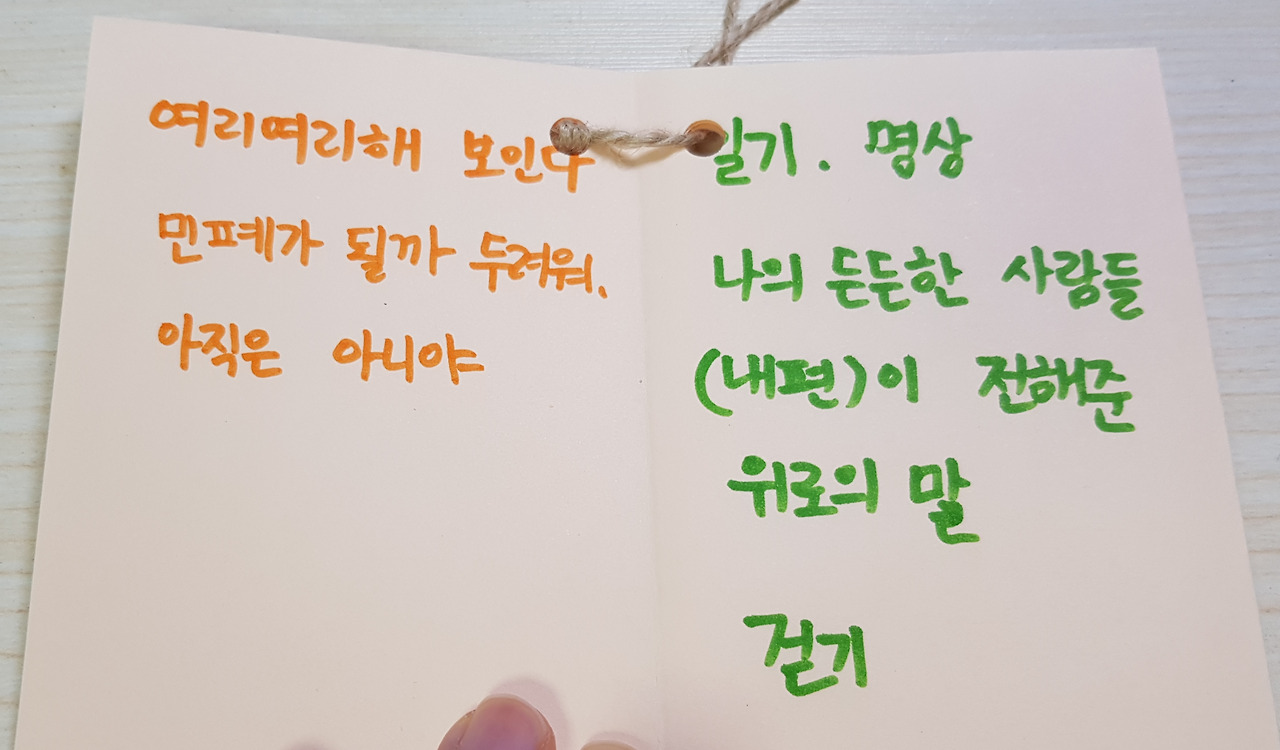 여리여리해 보인다
민폐가 될까 두려워.
아직은 아니야
일기. 명상
나의 든든한 사람들
(내편)이 전해준
위로의 말
걷기